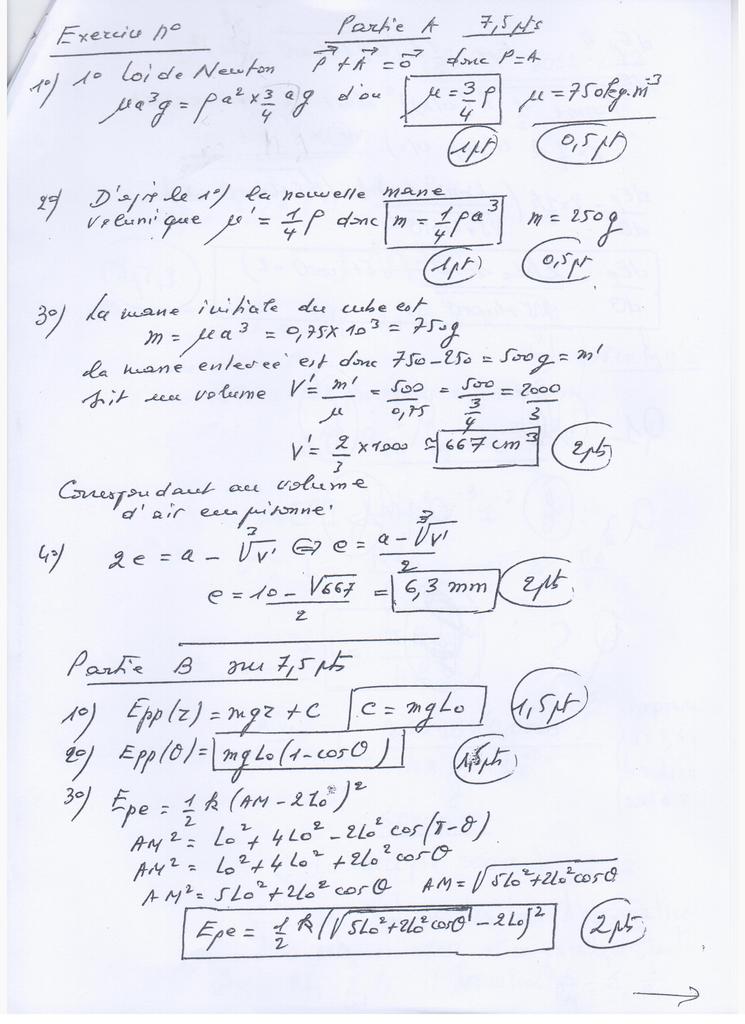 Exercice n° Partie A 7,5pts
1°) 1° loi de Newton P⃗ + A⃗ = 0⃗ donc P=A
μa³g = ρa² × 3/4 ag d'où μ = 3/4 ρ μ = 750kg.m⁻³
1pt 0,5pt
2°) D'après le 1°) la nouvelle masse
volumique μ' = 1/4 ρ donc m = 1/4 ρa³ m = 250g
1pt 0,5pt
3°) La masse initiale du cube est
m = μa³ = 0,75×10³ = 750g
La masse enlevée est donc 750-250 = 500g = m'
soit un volume V' = m'/μ = 500/0,75 = 500/(3/4) = 2000/3
V' = 2/3 ×1000 ≃ 667 cm³ 2pts
Correspondant au volume
d'air emprisonné.
4°) 2e = a - ∛V' ⇔ e = (a - ∛V')/2
e = (10 - √667)/2 = 6,3 mm 2pts
Partie B sur 7,5 pts
1°) Epp(z) = mgz + C C = mgLo 1,5pt
2°) Epp(θ) = mgLo(1-cosθ) pts
3°) Epe = 1/2 k (AM - 2Lo)²
AM² = Lo² + 4Lo² - 2Lo² cos(π-θ)
AM² = Lo² + 4Lo² + 2Lo² cosθ
AM² = 5Lo² + 2Lo² cosθ AM = √(5Lo²+2Lo²cosθ)
Epe = 1/2 k (√(5Lo²+2Lo²cosθ) - 2Lo)² 2pts
→